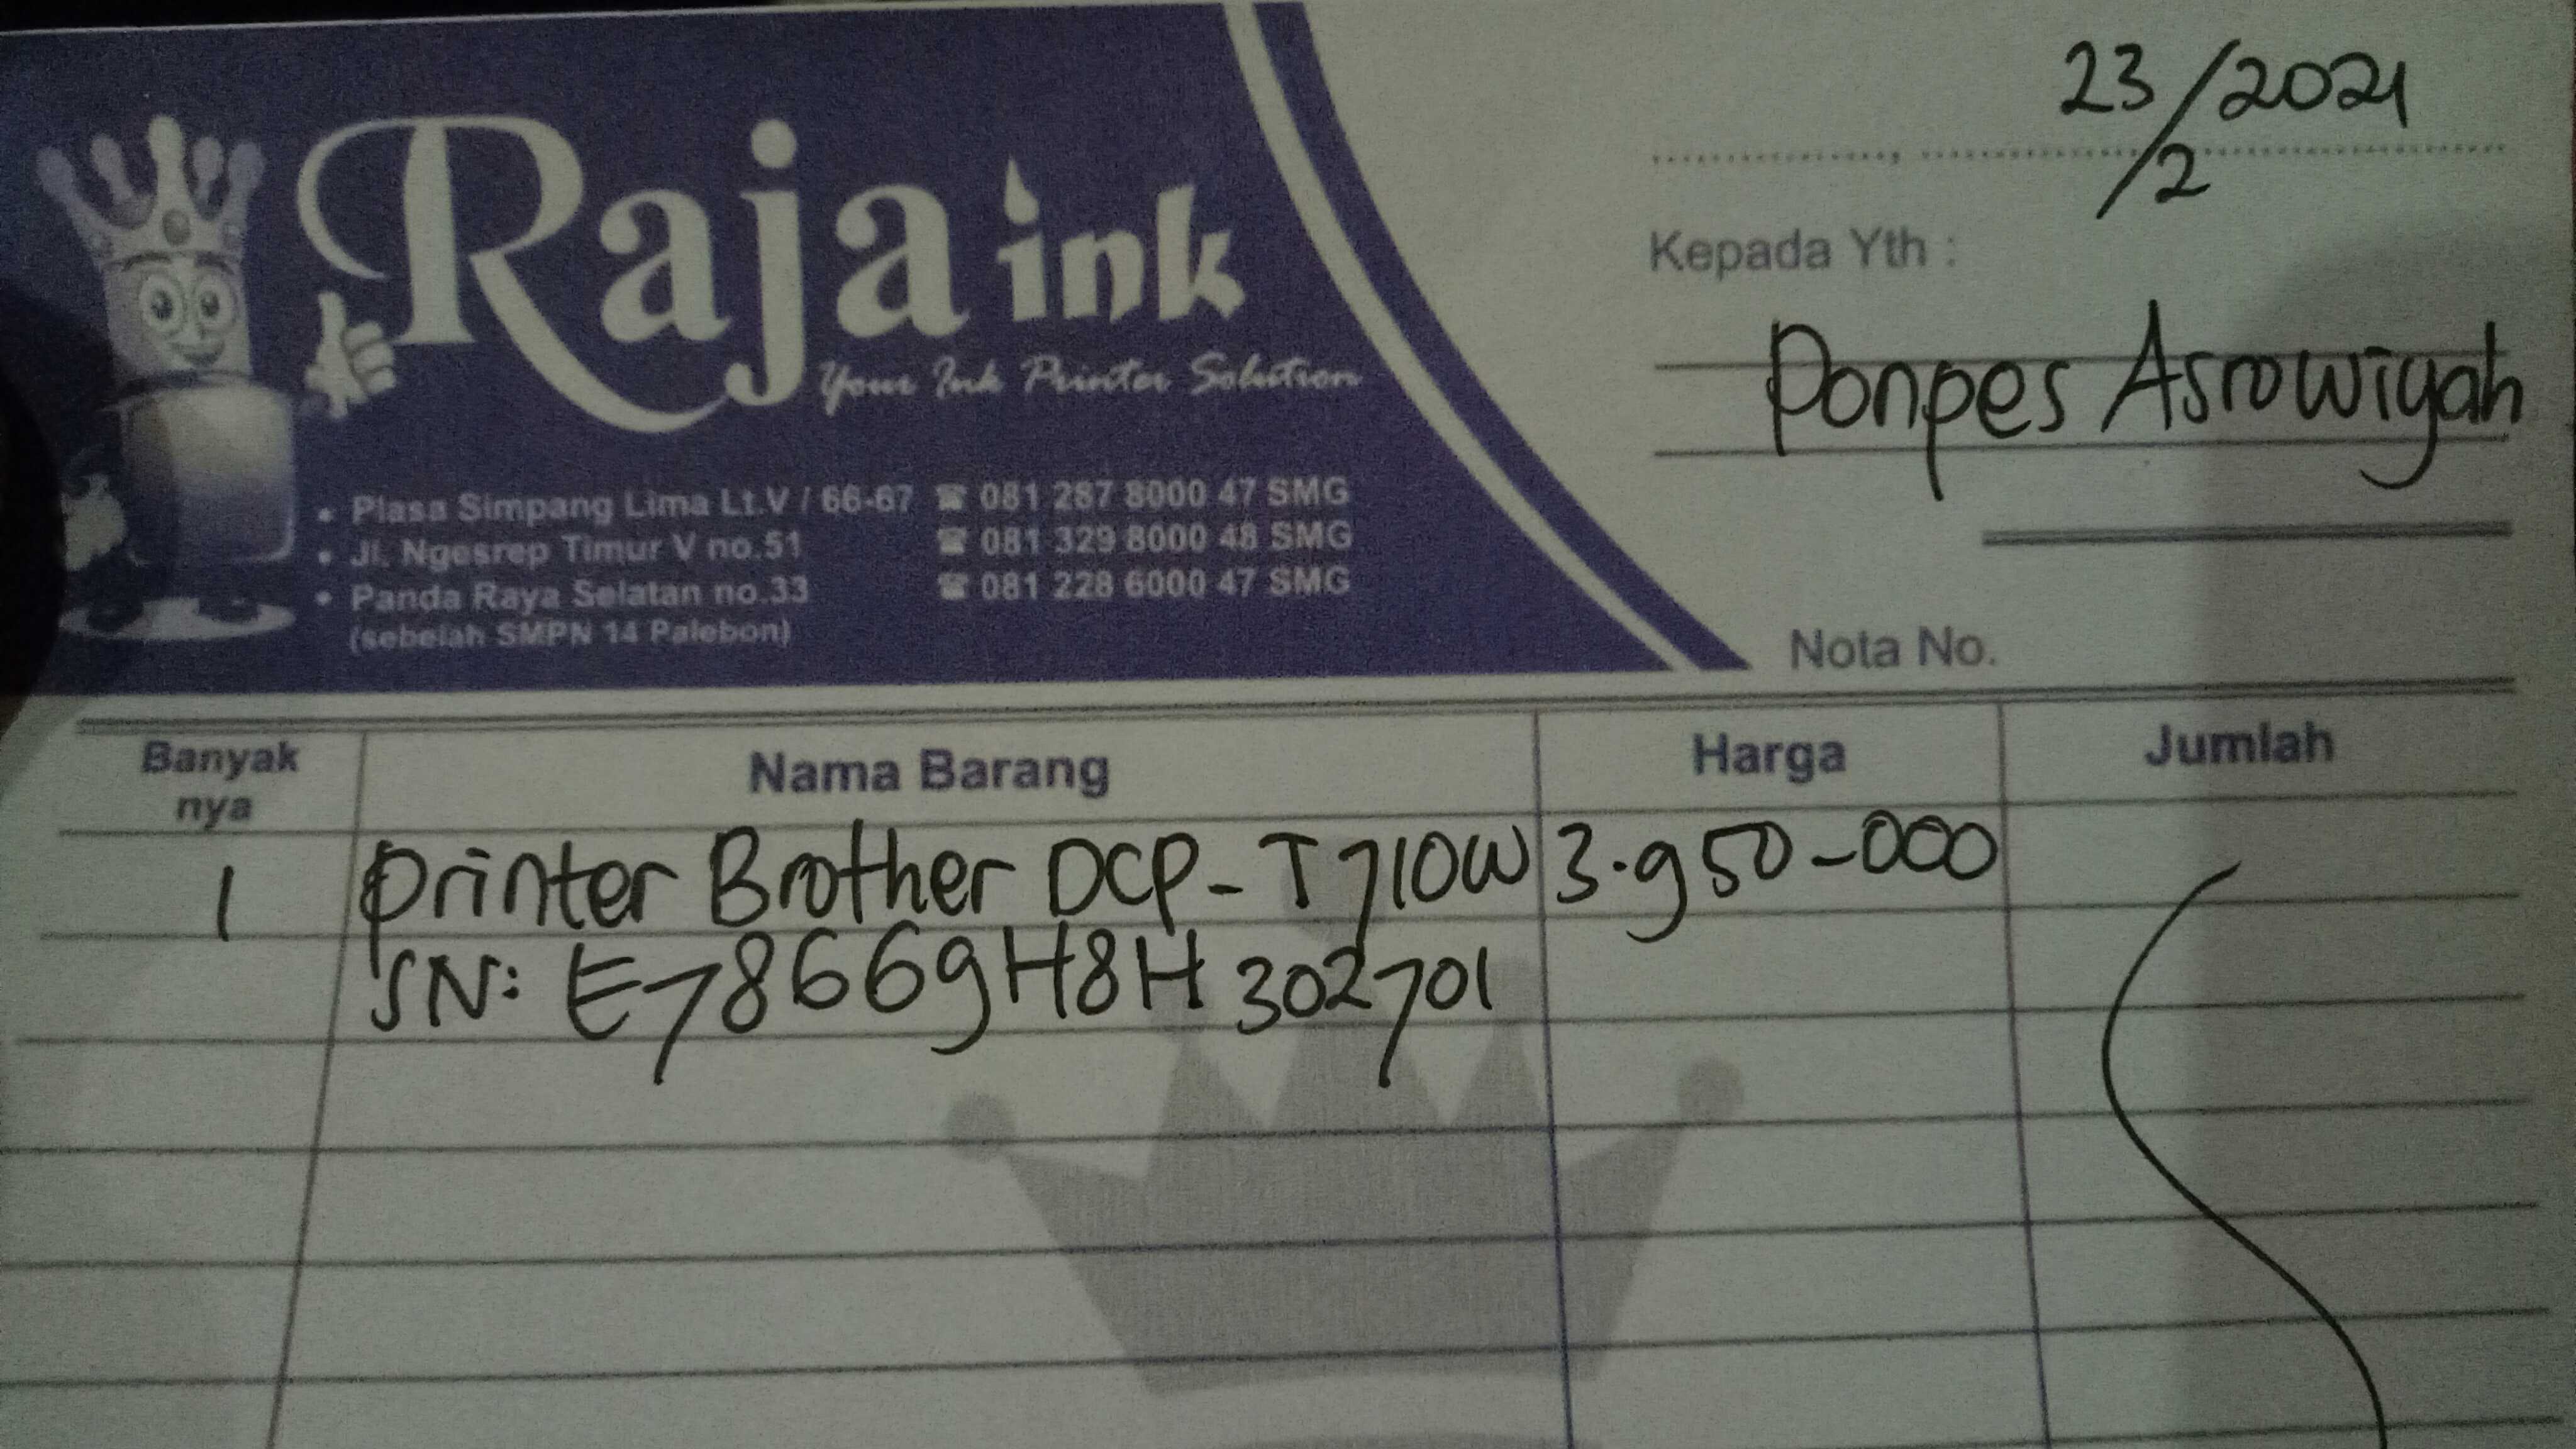 Raja ink
Your Ink Printer Solution
• Plasa Simpang Lima Lt.V / 66-67 ☎ 081 287 8000 47 SMG
• Jl. Ngesrep Timur V no.51 ☎ 081 329 8000 48 SMG
• Panda Raya Selatan no.33 ☎ 081 228 6000 47 SMG
(sebelah SMPN 14 Palebon)
23/2/2021
Kepada Yth :
Ponpes Asrowiyah
Nota No.
Banyak nya Nama Barang Harga Jumlah
1 Printer Brother DCP-T710W 3.950-000
SN: E78669H8H302701